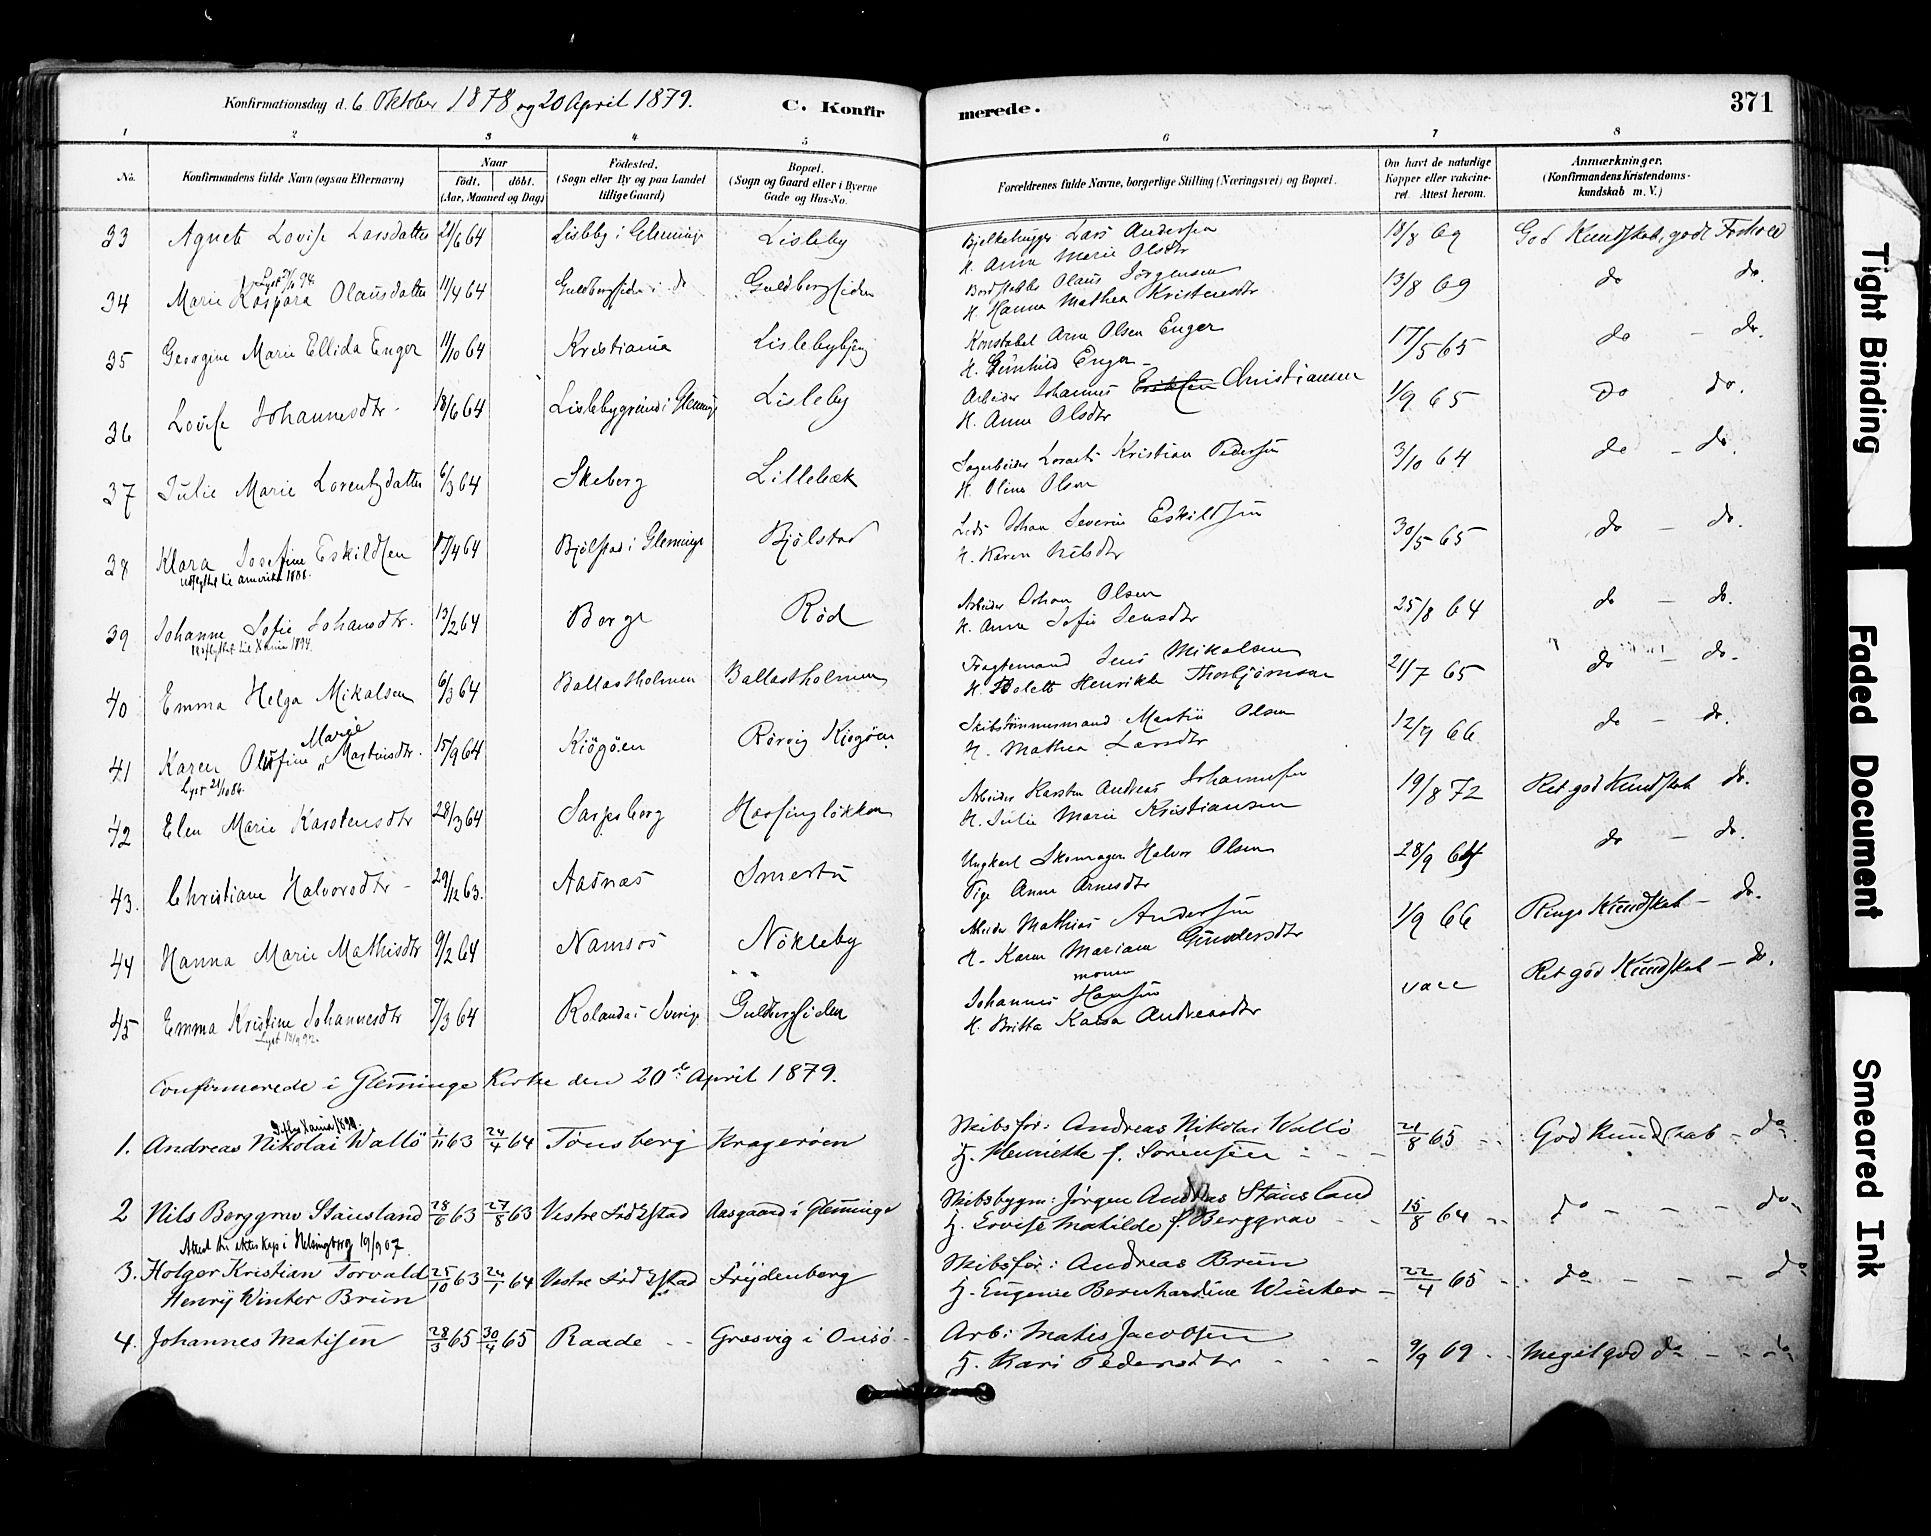 Konfirmationsdag d. 6 Oktober 1878 og 20 April 1879. C. Konfirmerede. 371
1 2 3 4 5 6 7 8
No. Konfirmandens fulde Navn (ogsaa Efternavn) Naar født. døbt. (Aar, Maaned og Dag) Fødested. (Sogn eller By og paa Landet tillige Gaard) Bopæl. (Sogn og Gaard eller i Byerne Gade og Hus-No. Forældrenes fulde Navne, borgerlige Stilling (Næringsvei) og Bopæl. Om havt de naturlige Kopper eller vakcineret. Attest herom. Anmærkninger. (Konfirmandens Kristendomskundskab m. V.)
33 Agnete Lovise Larsdatter 21/6 64 Lisleby i Glemminge Lisleby Bjelkehugger Lars Andersen 18/8 69 God Kundskab, godt Forhold
H. Anna Marie Olsdtr
34 Marie Kaspara Olausdatter 11/4 64 Guldbergsiden i do Guldbergsiden Bordstabler Olaus Jörgensen 13/8 69 do do.
H. Hanna Mathea Kristensdtr
35 Georgine Marie Ellida Enger 11/10 64 Kristiania Lislebybjerg Konstabel Arne Olsen Enger 17/5 65 do - do.
H. Gunhild Enger -
36 Lovise Johannesdtr - 18/6 64 Lislebygrund i Glemminge Lisleby Arbeider Johannes Eriksen Christiansen 1/9 65 do do.
H. Anne Olsdtr
37 Julie Marie Lorentzdatter 6/3 64 Skeberg Lillebæk Sagarbeider Lorents Kristian Pedersen 3/10 64 do - do.
H. Oline Olsen
38 Klara Josefine Eskildsen 17/4 64 Bjölstad i Glemminge Bjölstad Johan Severin Eskildsen 30/5 65 do - do.
udflyttet til Amerika 1888. H. Karen Nilsdtr
39 Johanne Sofie Johansdtr. 13/2 64 Borge Röd Arbeider Johan Olsen 25/8 64 do - do.
Udflyttet til Xania 1894. H. Anne Sofie Jensdtr
40 Emma Helga Mikalsen 6/3 64 Ballastholmen Ballastholmen Fragtemand Jens Mikalsen 21/7 65 do - do.
H. Bolette Henrikke Thorbjörnsen
41 Karen Olufine Marie Martinsdtr. 15/9 64 Kjögöen Rörvig Kjögöen Skibstömmermand Martin Olsen 12/7 66 do - do.
Lyst 21/10 86. H. Mathea Larsdtr
42 Elen Marie Karstensdtr 28/3 64 Sarpsborg Haslinglökken Arbeider Karsten Andreas Johannesen 19/8 72 Ret god Kundskab do.
H. Julie Marie Kristiansen
43. Christiane Halvorsdtr - 29/12 63. Aasnæs Smertu Ungkarl Skomager Halvor Olsen 28/9 64 do - do.
Pige Anne Arnesdtr
44 Hanna Marie Mathisdtr 9/2 64 Namsos Nökleby Arbeider Mathias Andersen 1/9 66 Ringe Kundskab - do.
H. Karen Mariane Gundersdtr
45 Emma Kristine Johannesdtr 7/3 64 Rolanda i Sverige Guldbergsiden Johannes Hansen vacc Ret god Kundskab - do.
H. Britta Kaisa Andreasdtr
Confirmerede i Glemminge Kirke den 20de April 1879.
1. Andreas Nikolai Wallö 1/11 63 24/4 64 Tönsberg Kragerøen Skibsför: Andreas Nikolai Wallö 21/8 65 God Kundskab - do
H. Henriette f. Sörensen
2 Nils Berggrav Stausland 28/6 63 27/8 63 Vestre Fredrikstad Aasgaard i Glemminge Skibsbygm: Jørgen Andreas Stausland 15/8 64 do - - - do
H. Lovise Mathilde f. Berggrav
Attest til ekteskap i Helsingborg 19/9 07.
3. Holger Kristian Torvald 25/10 63 24/1 64 Vestre Fredrikstad Frydenberg Skibsför: Andreas Brun 22/4 65 do - - - do
Henry Winter Brun H. Eugenie Bernhardine Winter
4. Johannes Matisen 28/3 65 30/4 65 Raade Græsvig i Onsö Arb: Matis Jacobsen 9/9 69 Meget god do - - do
H. Kari Pedersdtr
Tight Binding
Faded Document
Smeared Ink